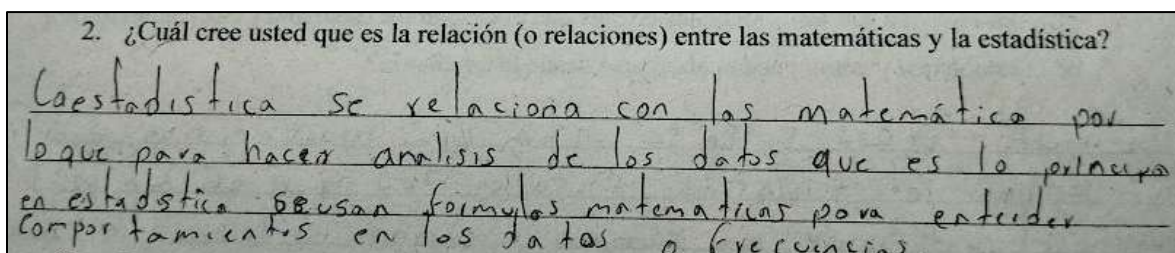 2. ¿Cuál cree usted que es la relación (o relaciones) entre las matemáticas y la estadística?
Laestadistica se relaciona con las matemática por
loque para hacer analisis de los datos que es lo principa
en estadstica se usan formulas matematicas para enteder
Comportamientos en los datos o frecuencias